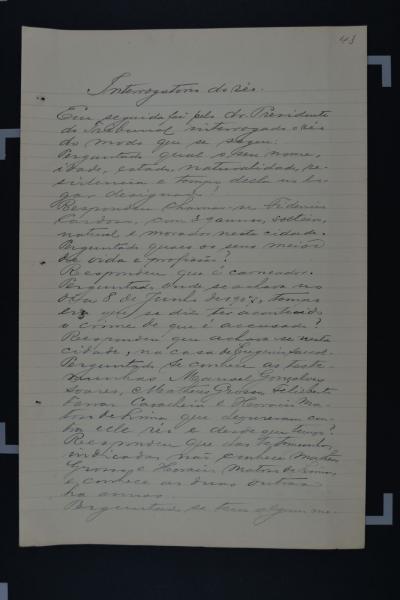 43
Interrogatorio do réo.
Em seguida foi pelo Dr. Presidente
do Tribunal interrogado o réo
do modo que se segue:
Perguntado qual o seu nome,
idade, estado, naturalidade, re-
sidencia e tempo desta no lu-
gar designado?
Respondeu chamar-se
Cardoso, com annos, solteiro,
natural e morador nesta cidade.
Perguntado quaes os seus meios
de vida e profissão?
Respondeu que é carneador.
Perguntado onde se achava no
dia 8 de Junho de
em que se diz ter acontecido
o crime de que é accusado?
Respondeu que achava-se nesta
cidade, na casa de Eugenio
Perguntado se conhece as teste-
munhas Manoel Gonçalves
Soares, Matheus
e Horacio Mat-
tos de Lima que depuseram con-
tra elle réo e desde que tempo?
Respondeu que das testemunhas
indicadas não conhece Matheus
e Horacio Mattos de Lima,
e conhece as duas outras
ha annos.
Perguntado se tem algum mo-